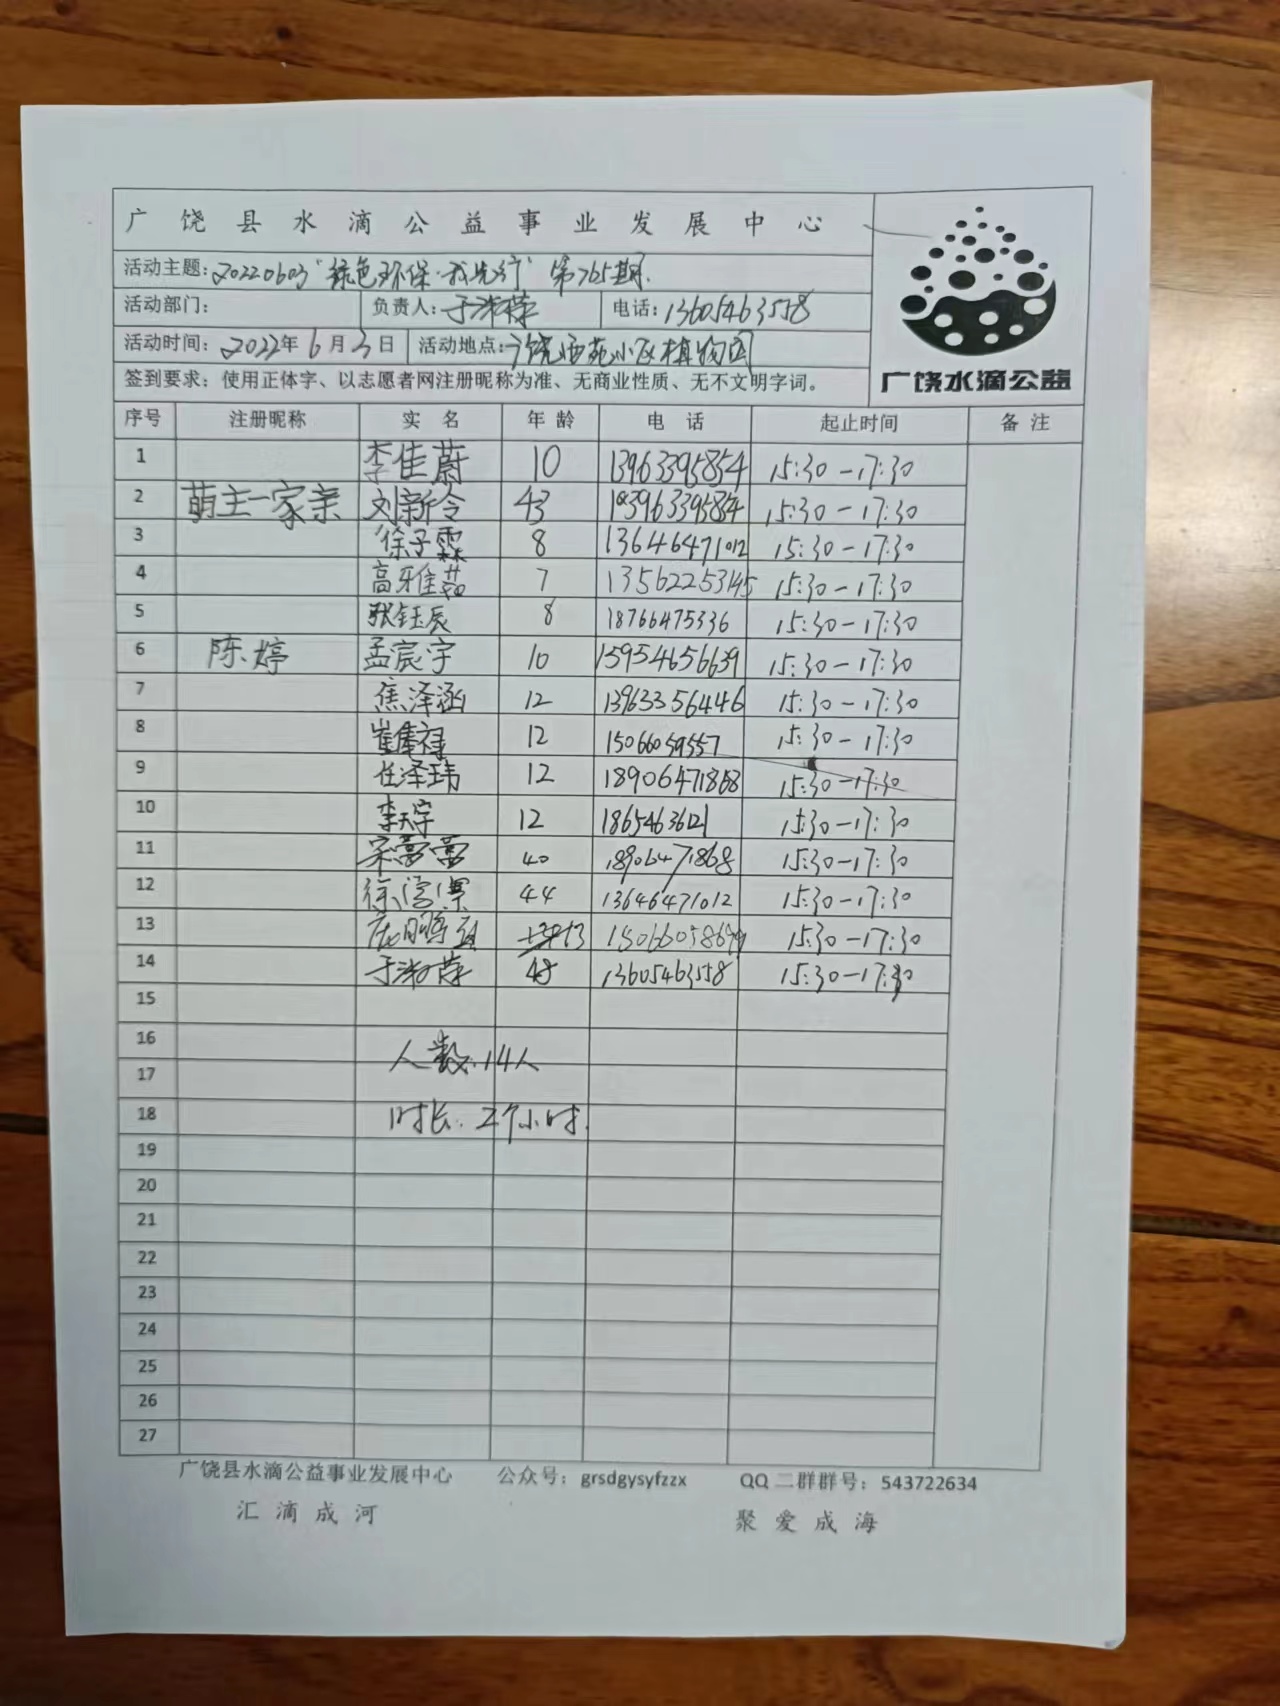 广饶县水滴公益事业发展中心
活动主题：20220603"绿色环保·我先行"第765期.
活动部门： 负责人：于淑蓉 电话：13605463558
活动时间：2022年6月3日 活动地点：广饶西苑小区植物园
签到要求：使用正体字、以志愿者网注册昵称为准、无商业性质、无不文明字词。
广饶水滴公益
序号 注册昵称 实名 年龄 电话 起止时间 备注
1 李佳蔚 10 13963395854 15:30-17:30
2 萌主一家亲 刘新令 43 13963395854 15:30-17:30
3 徐子霖 8 13646471012 15:30-17:30
4 高雅茹 7 13562253145 15:30-17:30
5 张钰辰 8 18766475336 15:30-17:30
6 陈婷 孟宸宇 10 15954656639 15:30-17:30
7 焦泽涵 12 13963356446 15:30-17:30
8 12 15066059557 15:30-17:30
9 任泽玮 12 18906471868 15:30-17:30
10 李天宇 12 1865463612 15:30-17:30
11 宋蕾蕾 40 18906471868 15:30-17:30
12 44 13646471012 15:30-17:30
13 13 15:30-17:30
14 于淑蓉 48 13605463558 15:30-17:30
15
16
人数：14人
17
18
时长：2个小时.
19
20
21
22
23
24
25
26
27
广饶县水滴公益事业发展中心 公众号：grsdgysyfzzx QQ 二群群号：543722634
汇滴成河 聚爱成海